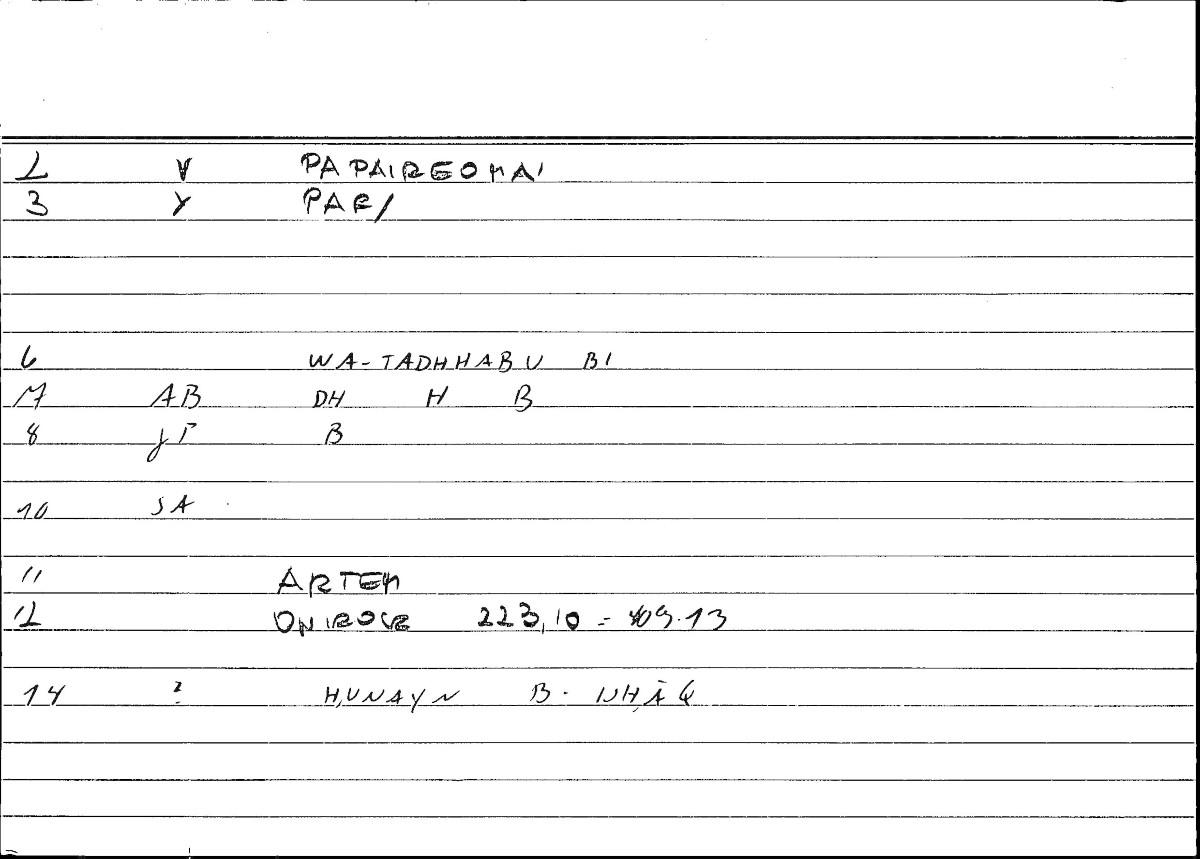 2 V PAPAIREOMAI
3 Y PAR/
6 WA-TADHHABU BI
7 AB DH H B
8 jT B
10 SA
11 ARTEM
12 ONIROCR 223,10 = 409.13
14 ? ḤUNAYN B. ISḤĀQ